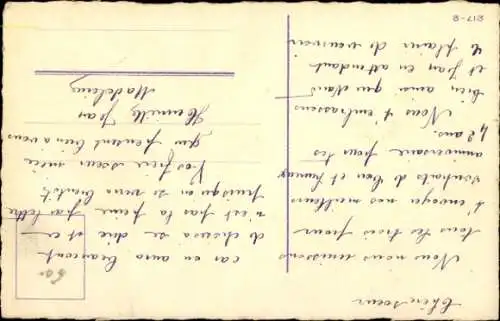 Chère sœur
Nous nous unissons
tous les trois pour
t'envoyer nos meilleurs
souhaits de bon et heureux
anniversaire pour tes
42 ans.
Nous t'embrassons
bien ainsi que
et Jean en attendant
le plaisir de vous voir
car on aura beaucoup
de choses à se dire et ce
n'est pas la peine par lettre
puisqu'on se verra bientôt
Vos frère sœur nièce
qui pensent bien à vous
Jean
Madeleine
817-8